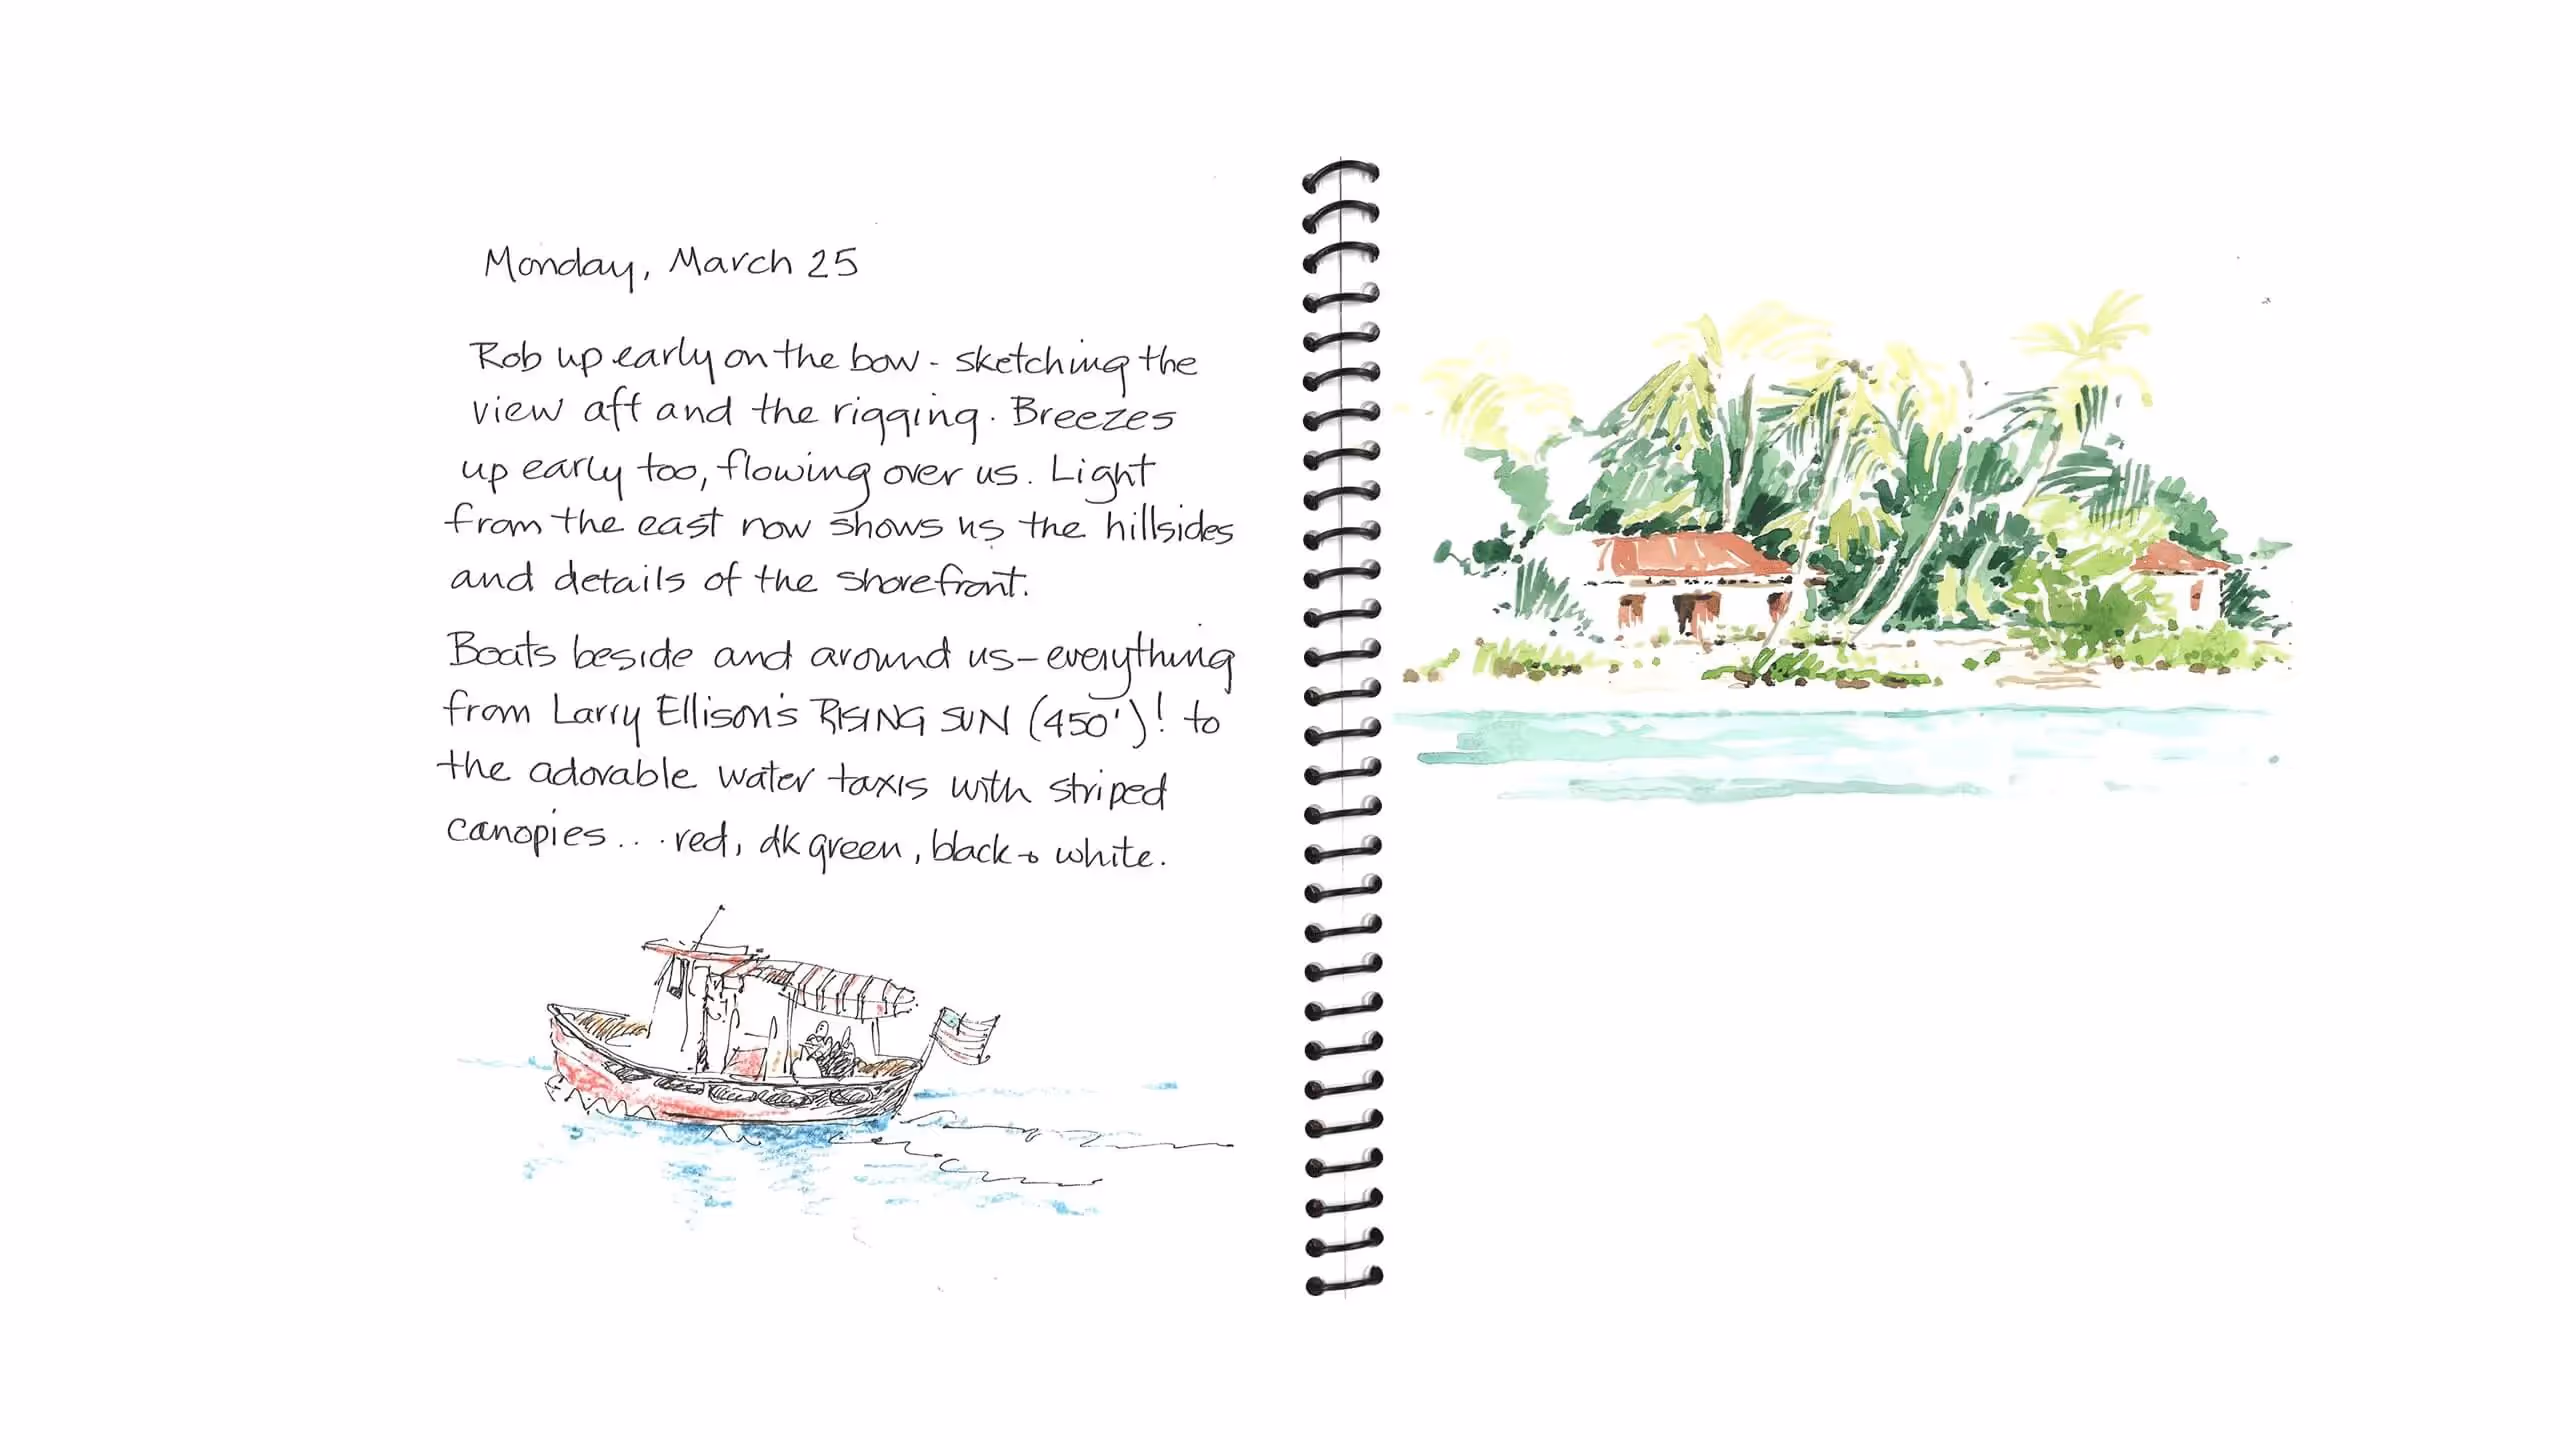 Monday, March 25
Rob up early on the bow - sketching the
view aft and the rigging. Breezes
up early too, flowing over us. Light
from the east now shows us the hillsides
and details of the shorefront.
Boats beside and around us - everything
from Larry Ellison's RISING SUN (450')! to
the adorable water taxis with striped
canopies... red, dk green, black + white.